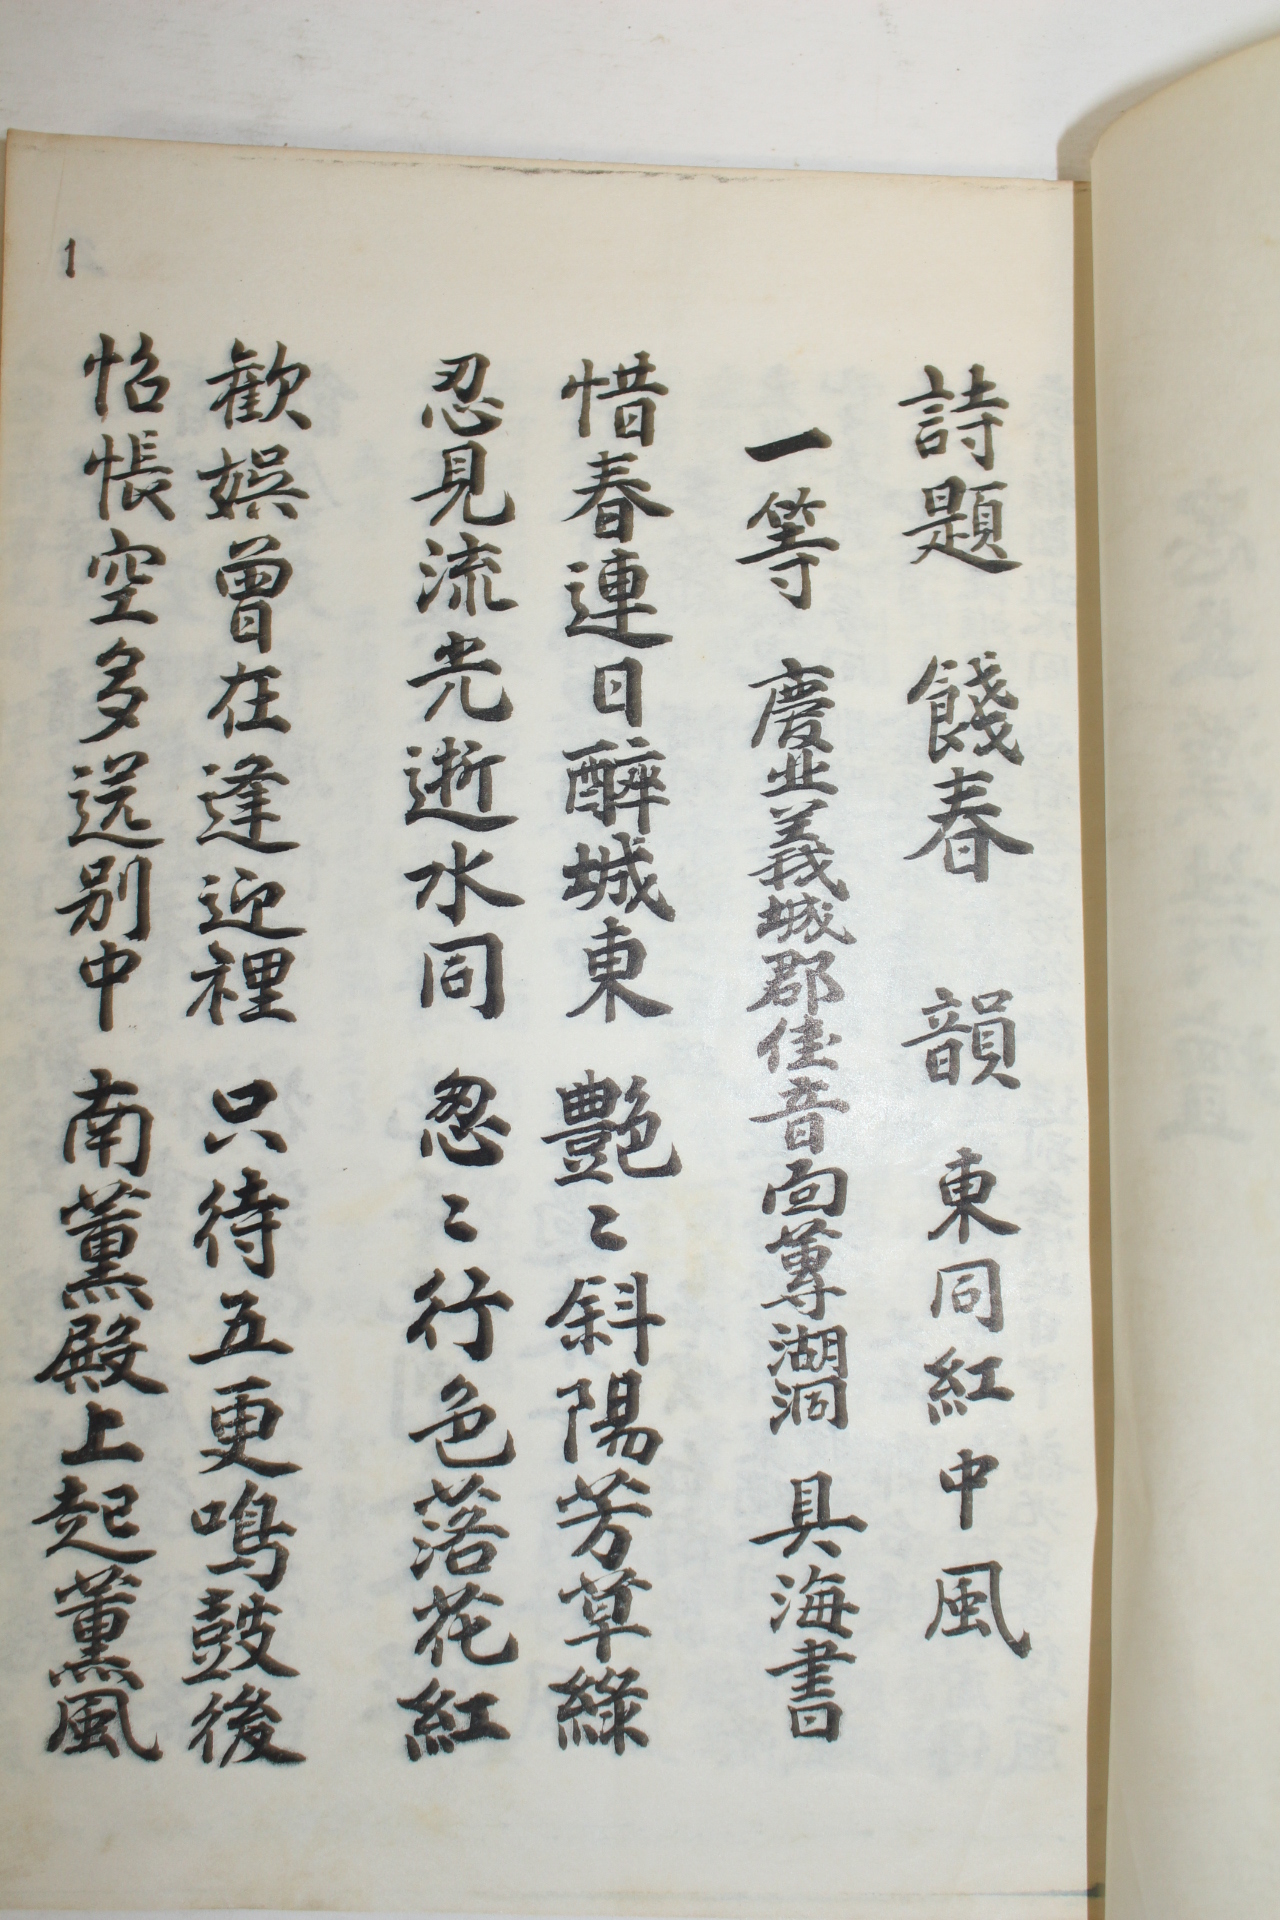 詩題 餞春 韻 東同紅中風
一等 慶北義城郡佳音面尊湖洞 具海書
惜春連日醉城東 艶〻斜陽芳草綠
忍見流光逝水同 忽〻行色落花紅
歡娛曾在逢迎裡 只待五更鳴鼓後
怊悵空多送別中 南薰殿上起薰風
1